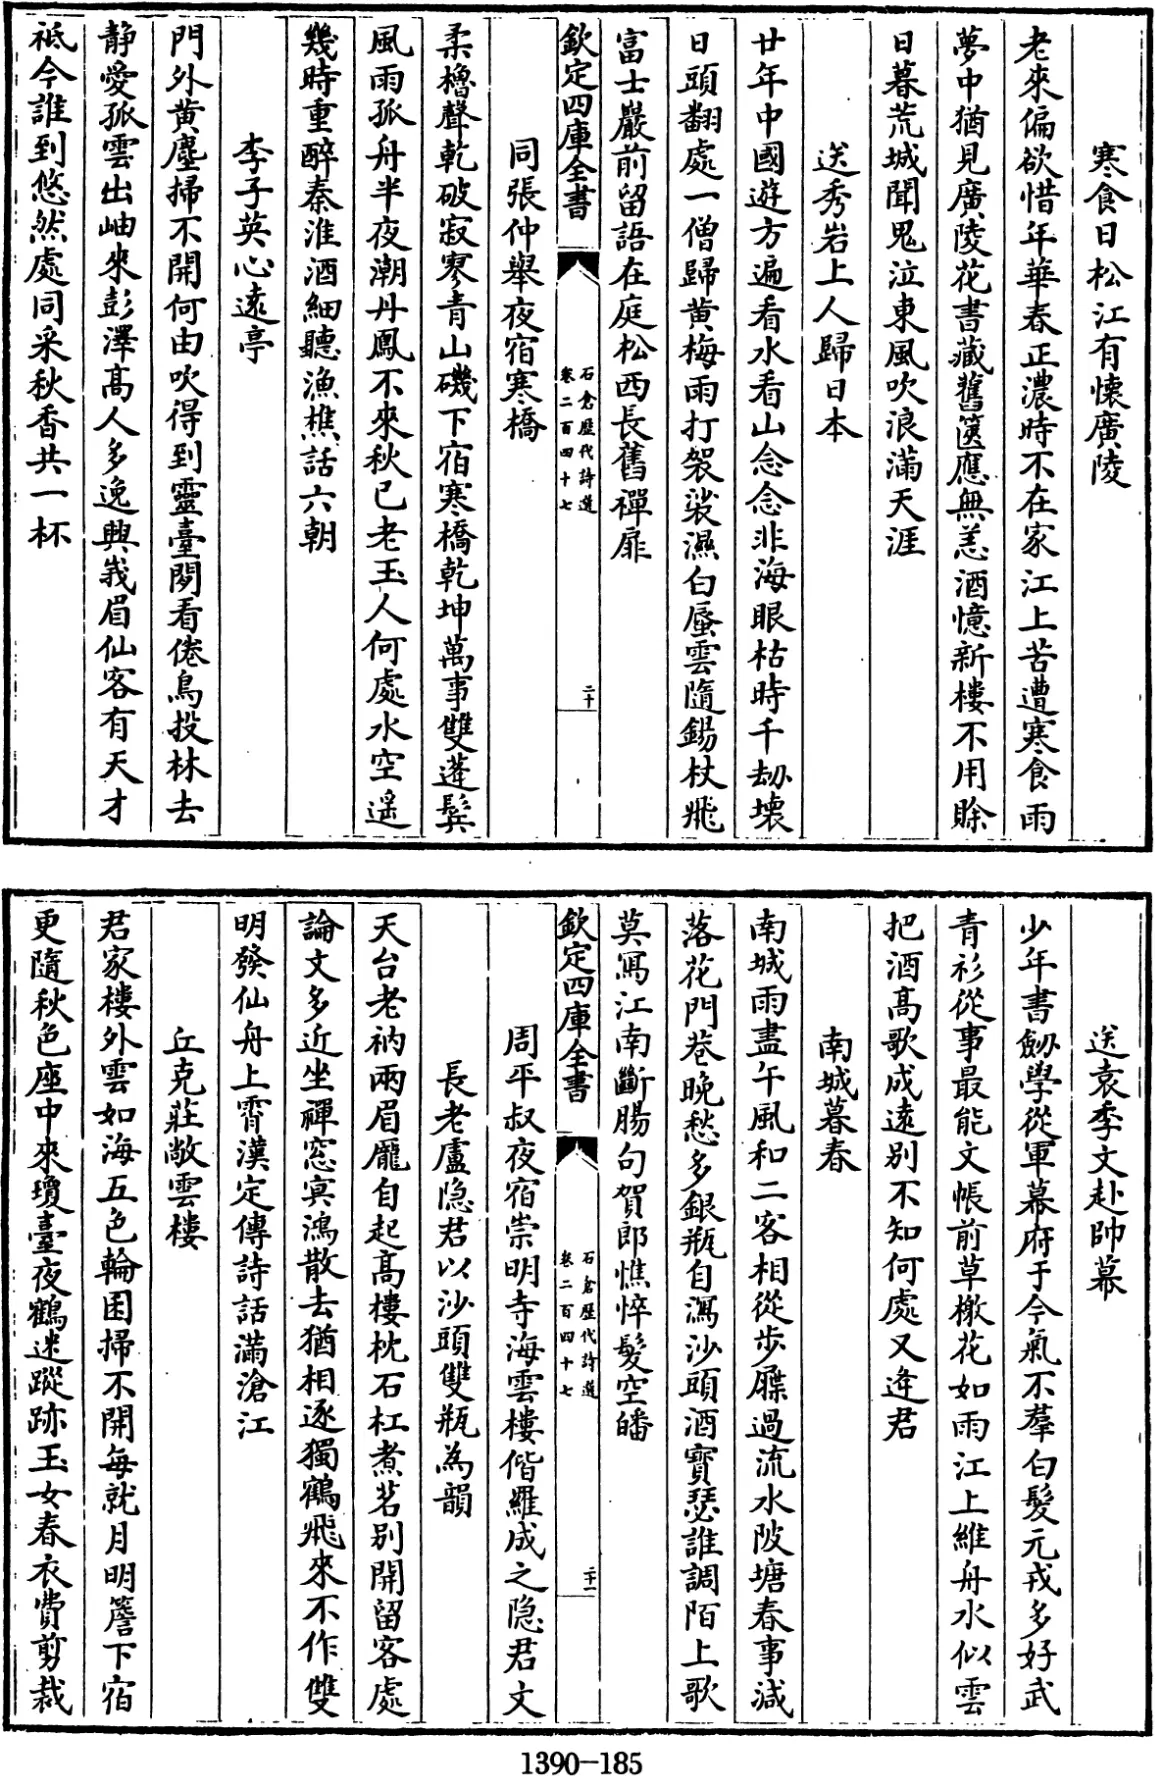 寒食日松江有懷廣陵
老來偏欲惜年華春正濃時不在家江上苦遭寒食雨
夢中猶見廣陵花書藏舊篋應無恙酒憶新樓不用賒
日暮荒城聞鬼泣東風吹浪滿天涯
送秀岩上人歸日本
廿年中國遊方遍看水看山念念非海眼枯時千劫壞
日頭翻處一僧歸黄梅雨打袈裟濕白蜃雲隨錫杖飛
富士巖前留語在庭松西長舊禪扉
欽定四庫全書
石倉歷代詩選
卷二百四十七
二十
同張仲舉夜宿寒橋
柔櫓聲乾破寂寥青山磯下宿寒橋乾坤萬事雙蓬鬢
風雨孤舟半夜潮丹鳳不來秋已老玉人何處水空遥
幾時重醉秦淮酒細聽漁樵話六朝
李子英心遠亭
門外黄塵掃不開何由吹得到靈臺閒看倦鳥投林去
静愛孤雲出岫來彭澤髙人多逸興峩眉仙客有天才
祗今誰到悠然處同采秋香共一杯
送袁季文赴帥幕
少年書劒學從軍幕府于今氣不羣白髮元戎多好武
青衫從事最能文帳前草檄花如雨江上維舟水似雲
把酒髙歌成遠别不知何處又逢君
南城暮春
南城雨盡午風和二客相從步屧過流水陂塘春事減
落花門巷晚愁多銀瓶自瀉沙頭酒寳瑟誰調陌上歌
莫寫江南斷腸句賀郎憔悴髮空皤
欽定四庫全書
石倉歷代詩選
卷二百四十七
二十一
周平叔夜宿崇明寺海雲樓偕羅成之隐君文
長老盧隐君以沙頭雙瓶為韻
天台老衲兩眉龎自起髙樓枕石杠煮茗别開留客處
論文多近坐禪窓㝠鴻散去猶相逐獨鶴飛來不作雙
明發仙舟上霄漢定傳詩話滿滄江
丘克莊敞雲樓
君家樓外雲如海五色輪囷掃不開每就月明簷下宿
更隨秋色座中來瓊臺夜鶴迷蹤跡玉女春衣費剪裁
1390-185